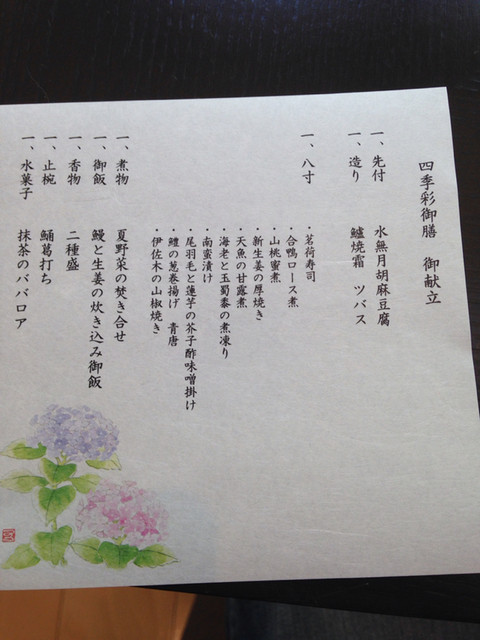 四季彩御膳 御献立
一、先付 水無月胡麻豆腐
一、造り 鱸焼霜 ツバス
一、八寸 ・茗荷寿司
・合鴨ロース煮
・山桃蜜煮
・新生姜の厚焼き
・天魚の甘露煮
・海老と玉蜀黍の煮凍り
・南蛮漬け
・尾羽毛と蓮芋の芥子酢味噌掛け
・鱧の葱巻揚げ 青唐
・伊佐木の山椒焼き
一、煮物 夏野菜の焚き合せ
一、御飯 鰻と生姜の炊き込み御飯
一、香物 二種盛
一、止椀 鯒葛打ち
一、水菓子 抹茶のババロア